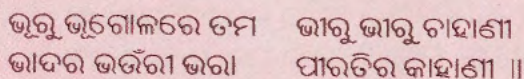 ଭୂରୁ ଭୂଗୋଳରେ ତମ ଭୀରୁ ଭୀରୁ ଚାହାଣୀ
ଭାଦର ଭଉଁରୀ ଭରା ପୀରତିର କାହାଣୀ ॥